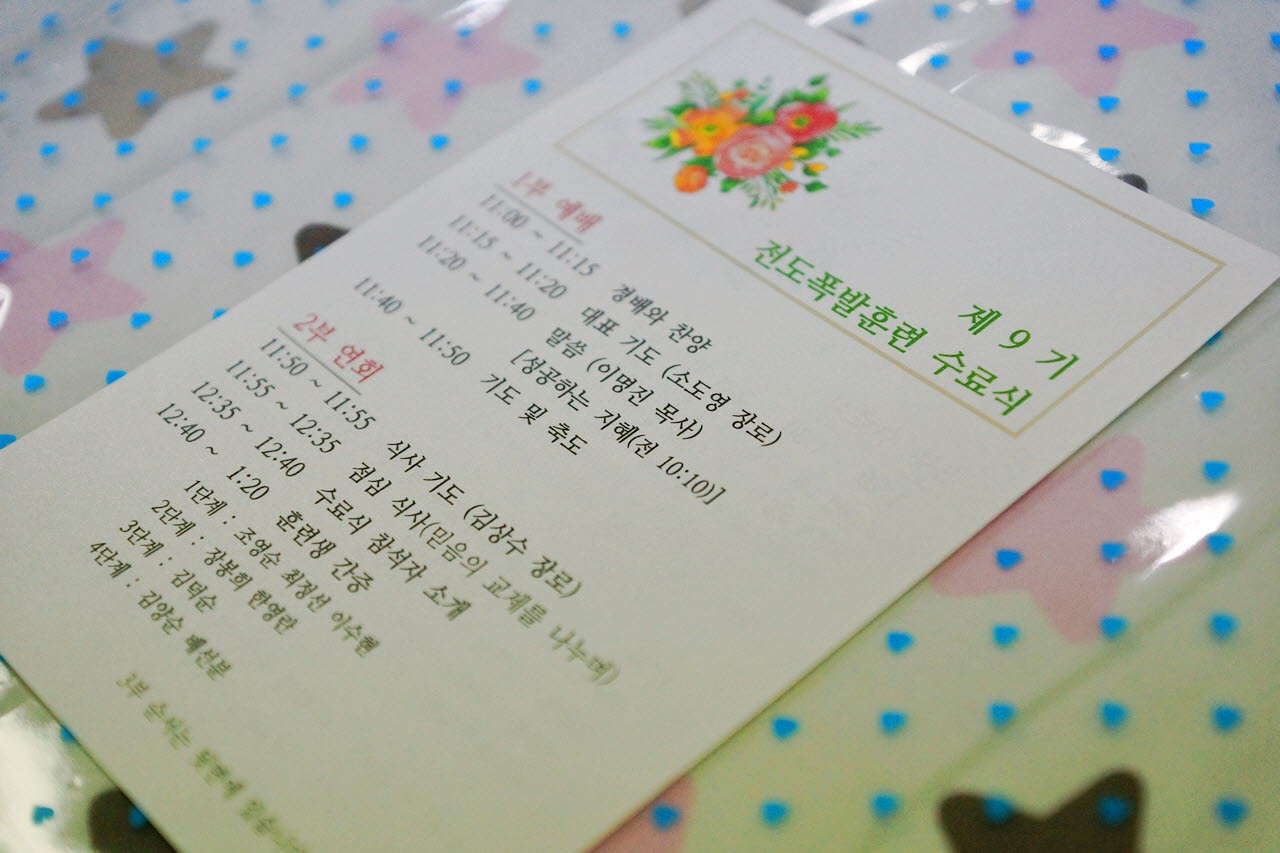 제 9 기
전도폭발훈련 수료식
1부 예배
11:00 ~ 11:15 경배와 찬양
11:15 ~ 11:20 대표 기도 (소도영 장로)
11:20 ~ 11:40 말씀 (이명진 목사)
[성공하는 지혜(전 10:10)]
11:40 ~ 11:50 기도 및 축도
2부 연회
11:50 ~ 11:55 식사 기도 (김상수 장로)
11:55 ~ 12:35 점심 식사(믿음의 교제를 나누며)
12:35 ~ 12:40 수료식 참석자 소개
12:40 ~ 1:20 훈련생 간증
1단계 : 조영순 최정선 이수현
2단계 : 장봉희 한영란
3단계 : 김덕순
4단계 : 김양순 배선분
3부 순서는 뒷면에